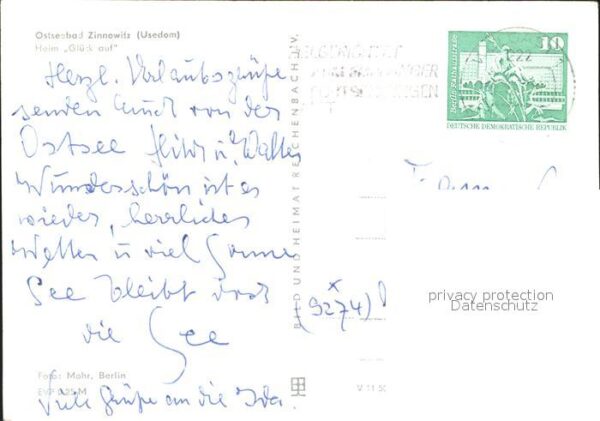 Ostseebad Zinnowitz (Usedom)
Heim „Glück auf"
Herzl. Urlaubsgrüße
senden Euch von der
Ostsee
Wunderschön ist es
wieder, herrliches
Wetter u viel Sonne
See bleibt
die See
Foto: Mohr, Berlin
EVP 0,25 M
Viele Grüße an die Ida.
BILD UND HEIMAT REICHENBACH i. V.
V 11 50
(9274)
10
DEUTSCHE DEMOKRATISCHE REPUBLIK
privacy protection
Datenschutz